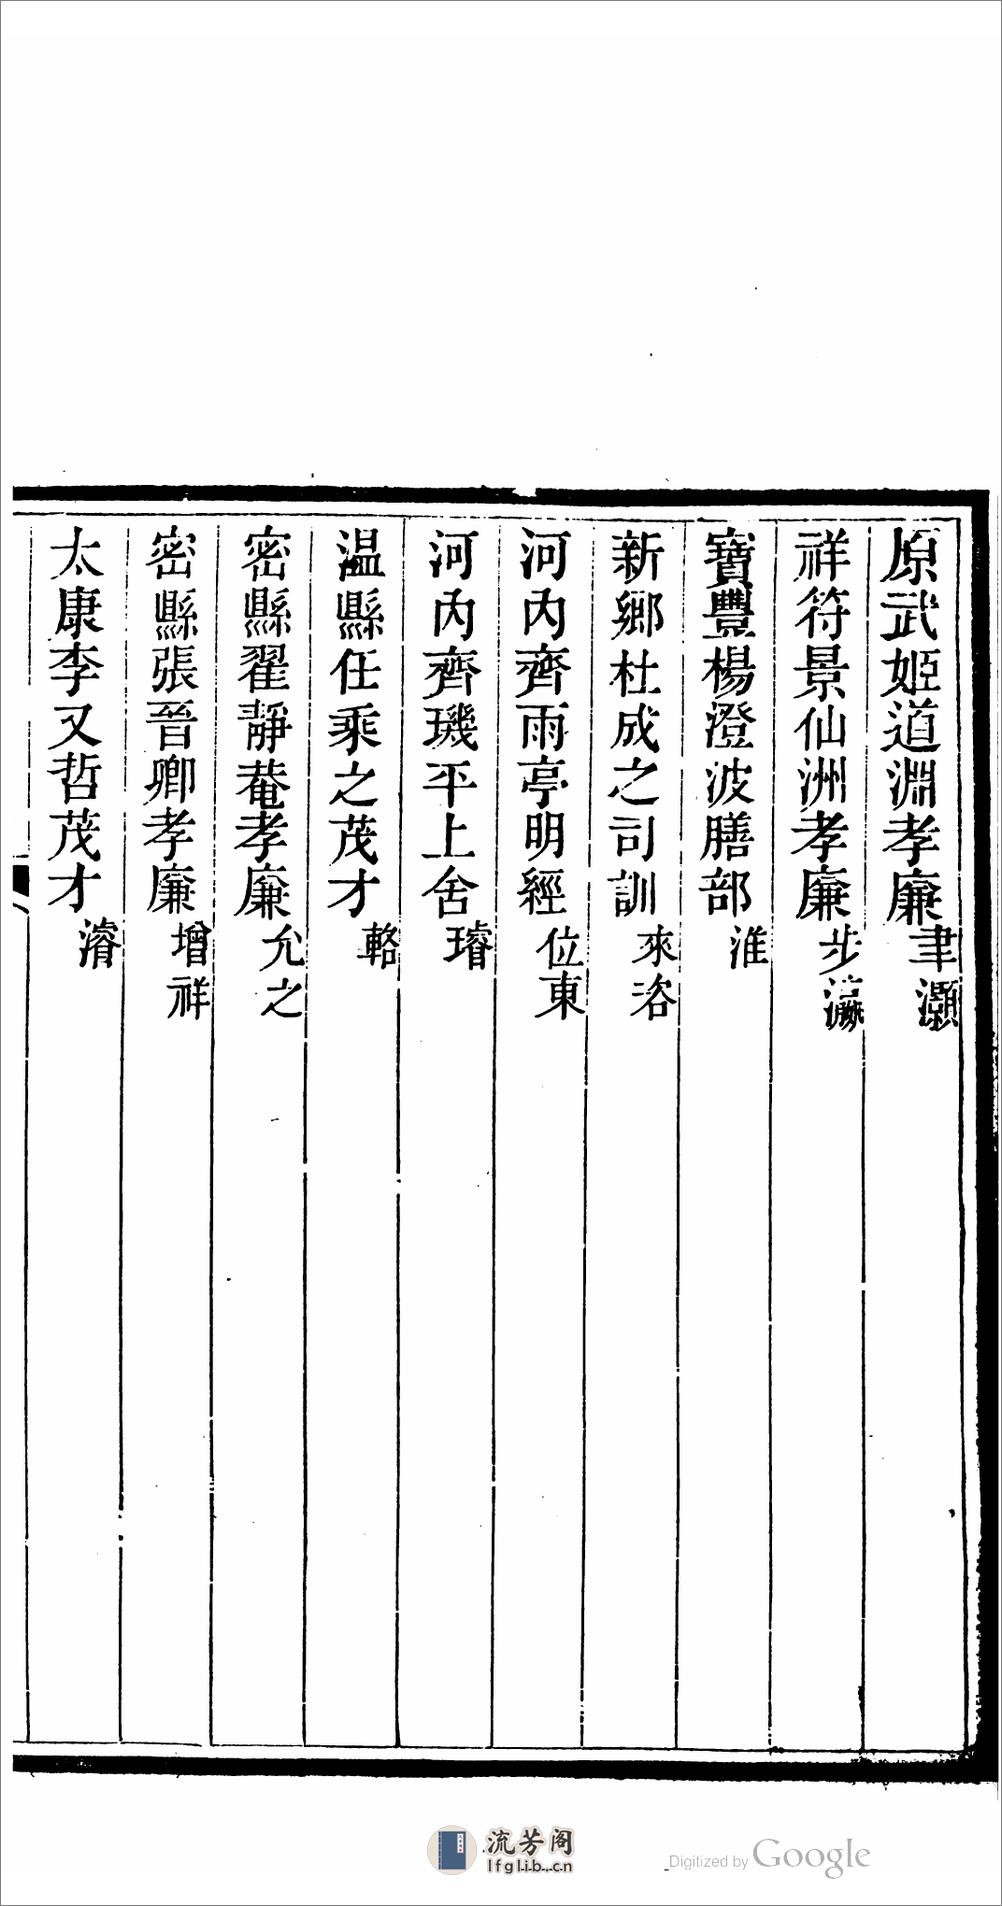 原武姬道淵孝廉聿灝
祥符景仙洲孝廉步瀛
寶豐楊澄波膳部淮
新鄉杜成之司訓來洛
河內齊雨亭明經位東
河內齊璣平上舍璿
温縣任乘之茂才輅
密縣翟靜菴孝廉允之
密縣張晉卿孝廉增祥
太康李又哲茂才濬
流芳阁
lfglib.cn
Digitized by Google